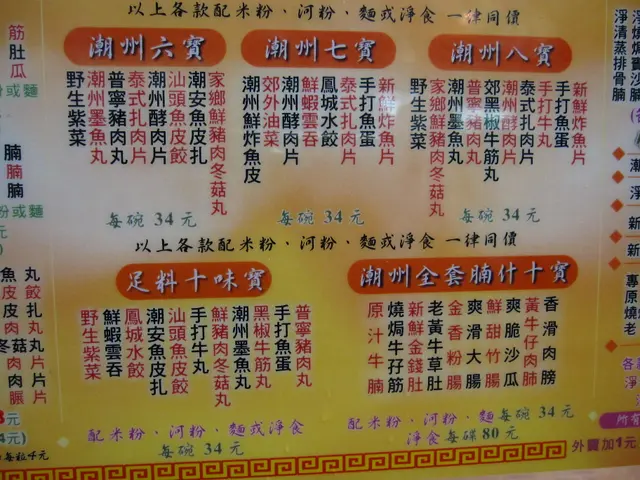 以上各款配米粉、河粉、麵或淨食 一律同價
潮州六寶
家鄉鮮豬肉冬菇丸
潮安魚皮扎
汕頭魚皮餃
潮州酵肉片
泰式扎肉片
普寧豬肉丸
潮州墨魚丸
野生紫菜
每碗 34 元
潮州七寶
新鮮炸魚片
手打魚蛋
泰式扎肉片
鳳城水餃
鮮蝦雲吞
潮州酵肉片
郊外油菜
潮州鮮炸魚皮
每碗 34 元
潮州八寶
新鮮炸魚片
手打魚蛋
手打牛丸
泰式扎肉片
潮州酵肉片
郊黑椒牛筋丸
普寧豬肉丸
潮州墨魚丸
家鄉鮮豬肉冬菇丸
野生紫菜
每碗 34 元
以上各款配米粉、河粉、麵或淨食 一律同價
足料十味寶
普寧豬肉丸
手打魚蛋
黑椒牛筋丸
潮州墨魚丸
鮮豬肉冬菇丸
手打牛丸
汕頭魚皮餃
潮安魚皮扎
鳳城水餃
鮮蝦雲吞
野生紫菜
配米粉、河粉、麵或淨食
每碗 34 元
潮州全套腩什十寶
香滑肉膀
黃牛仔肉肺
爽脆沙瓜
鮮甜竹腸
爽滑大腸
金香粉腸
老黃牛草肚
新鮮金錢肚
燒焗牛孖筋
原汁牛腩
配米粉、河粉、麵每碗 34 元
淨食每碟 80 元
外賣加1元